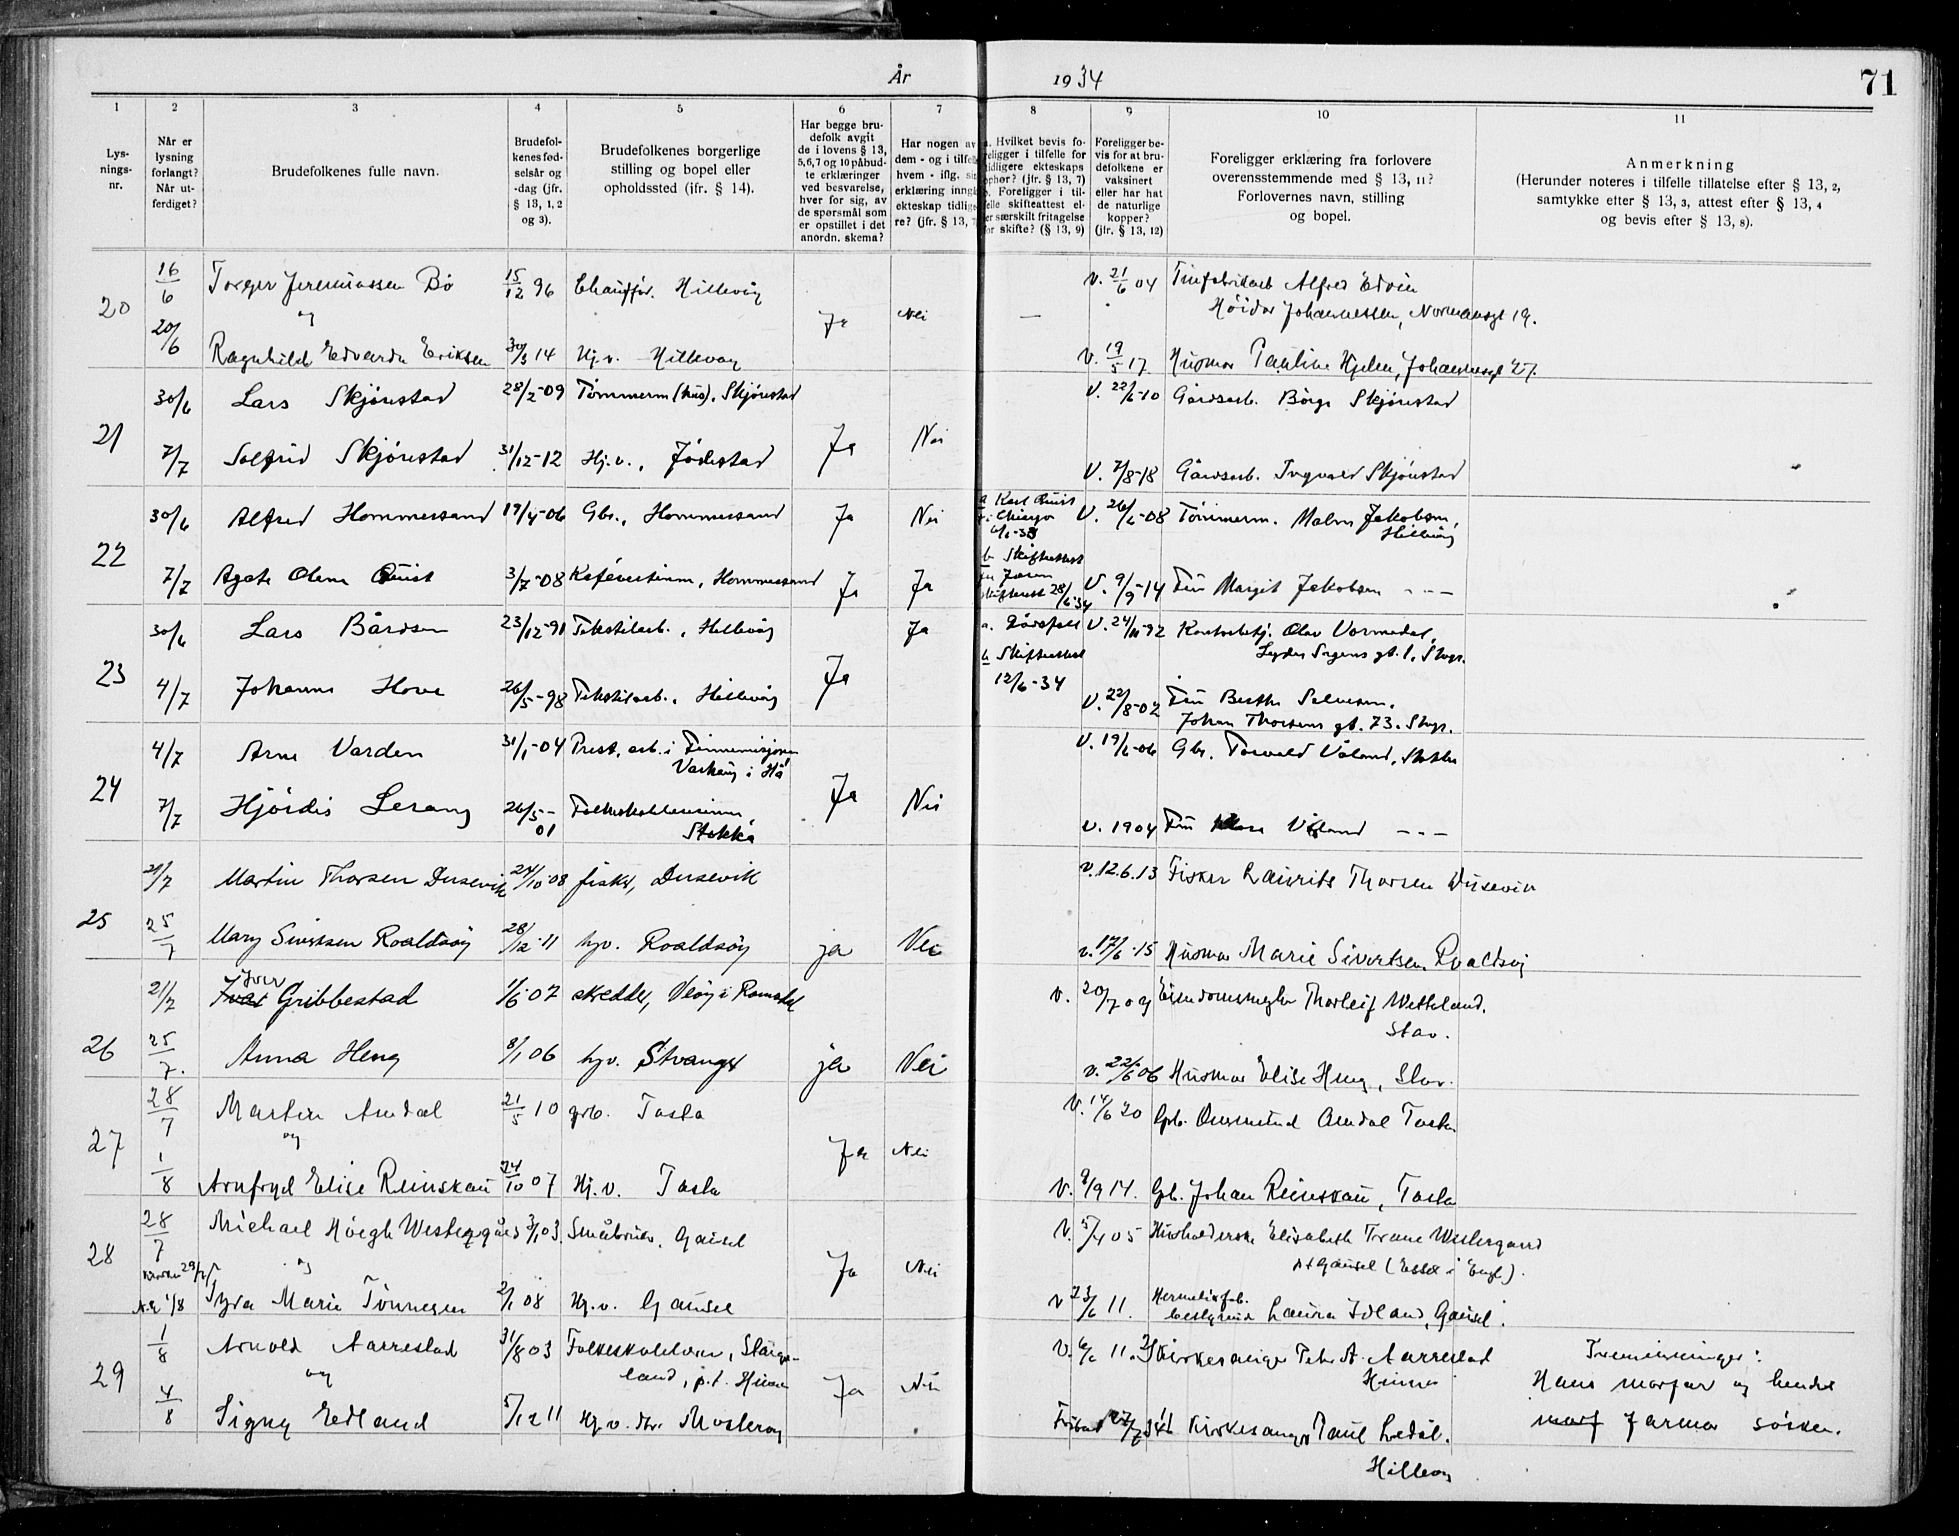 År 1934
71
1
2
3
4
5
6
7
8
9
10
11
Lys-
nings-
nr.
Når er
lysning
forlangt?
Når ut-
ferdiget?
Brudefolkenes fulle navn.
Brudefol-
kenes fød-
selsår og
-dag (jfr.
§ 13, 1, 2
og 3).
Brudefolkenes borgerlige
stilling og bopel eller
opholdssted (jfr. § 14).
Har begge bru-
defolk avgit
de i lovens § 13,
5,6,7 og 10 påbud-
te erklæringer
ved besvarelse,
hver for sig, av
de spørsmål som
er opstillet i det
anordn. skema?
Har nogen av
dem - og i tilfelle
hvem - iflg. si
erklæring inngå
ekteskap tidlige
re? (jfr. § 13, 7
a. Hvilket bevis fo-
religger i tilfelle for
tidligere ekteskaps
ophør? (jfr. § 13, 7)
b. Foreligger i til-
felle skifteattest el-
er særskilt fritagelse
for skifte? (§ 13, 9)
Foreligger be-
vis for at bru-
defolkene er
vaksinert
eller har hat
de naturlige
kopper?
(jfr. § 13, 12)
Foreligger erklæring fra forlovere
overensstemmende med § 13, 11?
Forlovernes navn, stilling
og bopel.
Anmerkning
(Herunder noteres i tilfelle tillatelse efter § 13, 2,
samtykke efter § 13, 3, attest efter § 13, 4
og bevis efter § 13, 8).
20 16/6 Torger Jeremiassen Bø 15/12 96 Chauffør. Hillevåg Ja Nei — v. 21/6 04 Alfred Edvin
og Johannessen, Normannsgt 19.
20/6 Ragnhild Edvarda Eriksen 30/3 14 Hj.v. Hillevåg v. 19/5 17. Husmor Pauline Hjelm, Johannesgt 27.
21 30/6 Lars Skjørestad 28/2-09 Tømmerm (hus), Skjørestad Ja Nei V. 22/6-10 Gårdsarb. Børge Skjørestad
7/7 Solfrid Skjørestad 31/12-12 Hj.v., Jødestad V. 7/8-18 Gårdsarb. Ingvald Skjørestad
22 30/6 Alfred Hommersand 19/4-06 Gbr., Hommersand Ja Nei V. 26/6-08 Tømmerm. Malm Jakobsen,
Hillevåg
a Karl Quist
i Chicago
6/1-33
b Skifteattest
fra Jæren
skifterett 28/6-34
7/7 Agate Olene Quist 3/7-08 Kafévertinne, Hommersand Ja Ja V. 9/9-14 Fru Margit Jakobsen - - -
23 30/6 Lars Bårdsen 23/12-91 Tekstilarb., Hillevåg Ja Ja a. Dødsfall V. 24/11-92 Kontorbetj. Olav Vormedal,
b Skifteattest
12/6-34
Lyder Sagens gt. 1, Stvgr.
4/7 Johanne Hove 26/5-98 Tekstilarb., Hillevåg V. 22/8-02 Fru Berthe Salvesen.
Johan Thorsens gt. 73. Stvgr.
24 4/7 Arne Varden 31/1-04 Prest, arb. i Finnemisjonen Ja Nei V. 19/6-06 Gbr. Torvald Våland, Stokka
Varhaug i Hå
7/7 Hjørdis Lerang 26/5-01 Folkeskolelærerinne, V. 1904 Fru Våland - - -
Stokka
25 21/7 Martin Thorsen Dusevik 24/10-08 fisker, Dusevik v. 12.6.13 Fisker Lauritz Thorsen Dusevik
25/7 Mary Sivertsen Roaldsøy 28/12-11 hjv. Roaldsøy ja Nei v. 17/6-15 Husmor Marie Sivertsen, Roaldsøy
26 21/7 Iver Gribbestad 1/6-07 skredder, Veøy i Romsdal v. 20/7 09 Eiendomsmegler Thorleif Wetteland.
Stav.
25/7. Anna Heng 8/1 06 hjv. Stvanger ja Nei v. 22/6 06 Husmor Elise Heng, Stav.
27 28/7 Martin Amdal 21/5 10 grb. Tasta Ja Nei V. 14/6 20 Gbr. Omsmund Amdal Tasta
og
1/8 Arnfryd Elise Reinskau 24/10 07 Hj.v. Tasta V. 9/9 14. Gb. Johan Reinskau, Tasta
28 28/7 Michael Høegh Westergård 3/1 03. Småbruker, Gausel Ja Nei V. 5/4 05 Husholderske Elisabeth Trane Westergaard
og Gausel (Essex i Engl).
1/8 Tyra Marie Tønnesen 2/1 08 Hj.v. Gausel v 23/6 11. Hermetikfab.
bestyrerinde Laura Idland, Gausel.
29 1/8 Arnold Aarrestad 31/8 03 Folkeskolelærer, Stange-
land, p.t. Hinna
Ja Nei V. 6/6 11. Kirkesanger Peter A. Aarrestad
Hinna
Tremenninger:
Hans morfar og hendes
morf farmor søsken.
og
4/8 Signy Edland 5/12 11 Hj.v. Mosterøy Kirkesanger Paul Ledal.
Hillevåg